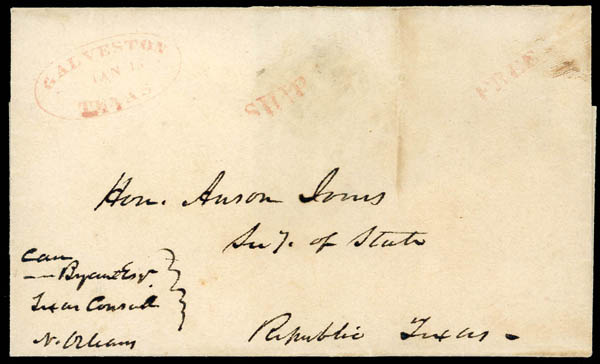 GALVESTON
JAN 1
TEXAS
SHIP
FREE
Hon. Anson Jones
Sec'y. of State
Care
Bryant Esqr.
Texas Consul
N. Orleans
Republic Texas